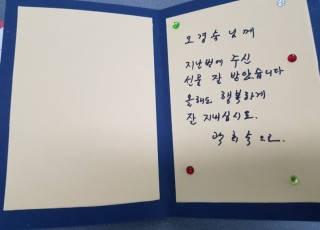 오경승님께
지난번에 주신
선물 잘 받았습니다
올해도 행복하게
잘 지내십시오.
박희숙 드림.